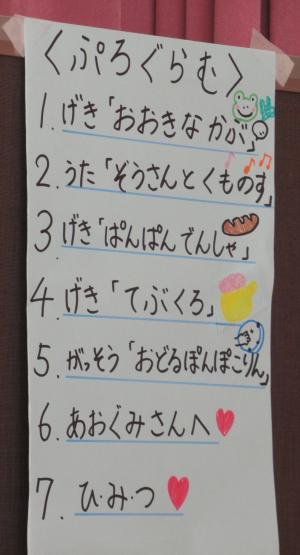 〈ぷろぐらむ〉
1. げき「おおきなかぶ」
2. うた「ぞうさんとくものす」
3. げき「ぱんぱんでんしゃ」
4. げき「てぶくろ」
5. がっそう「おどるぽんぽこりん」
6. あおぐみさんへ
7. ひ・み・つ